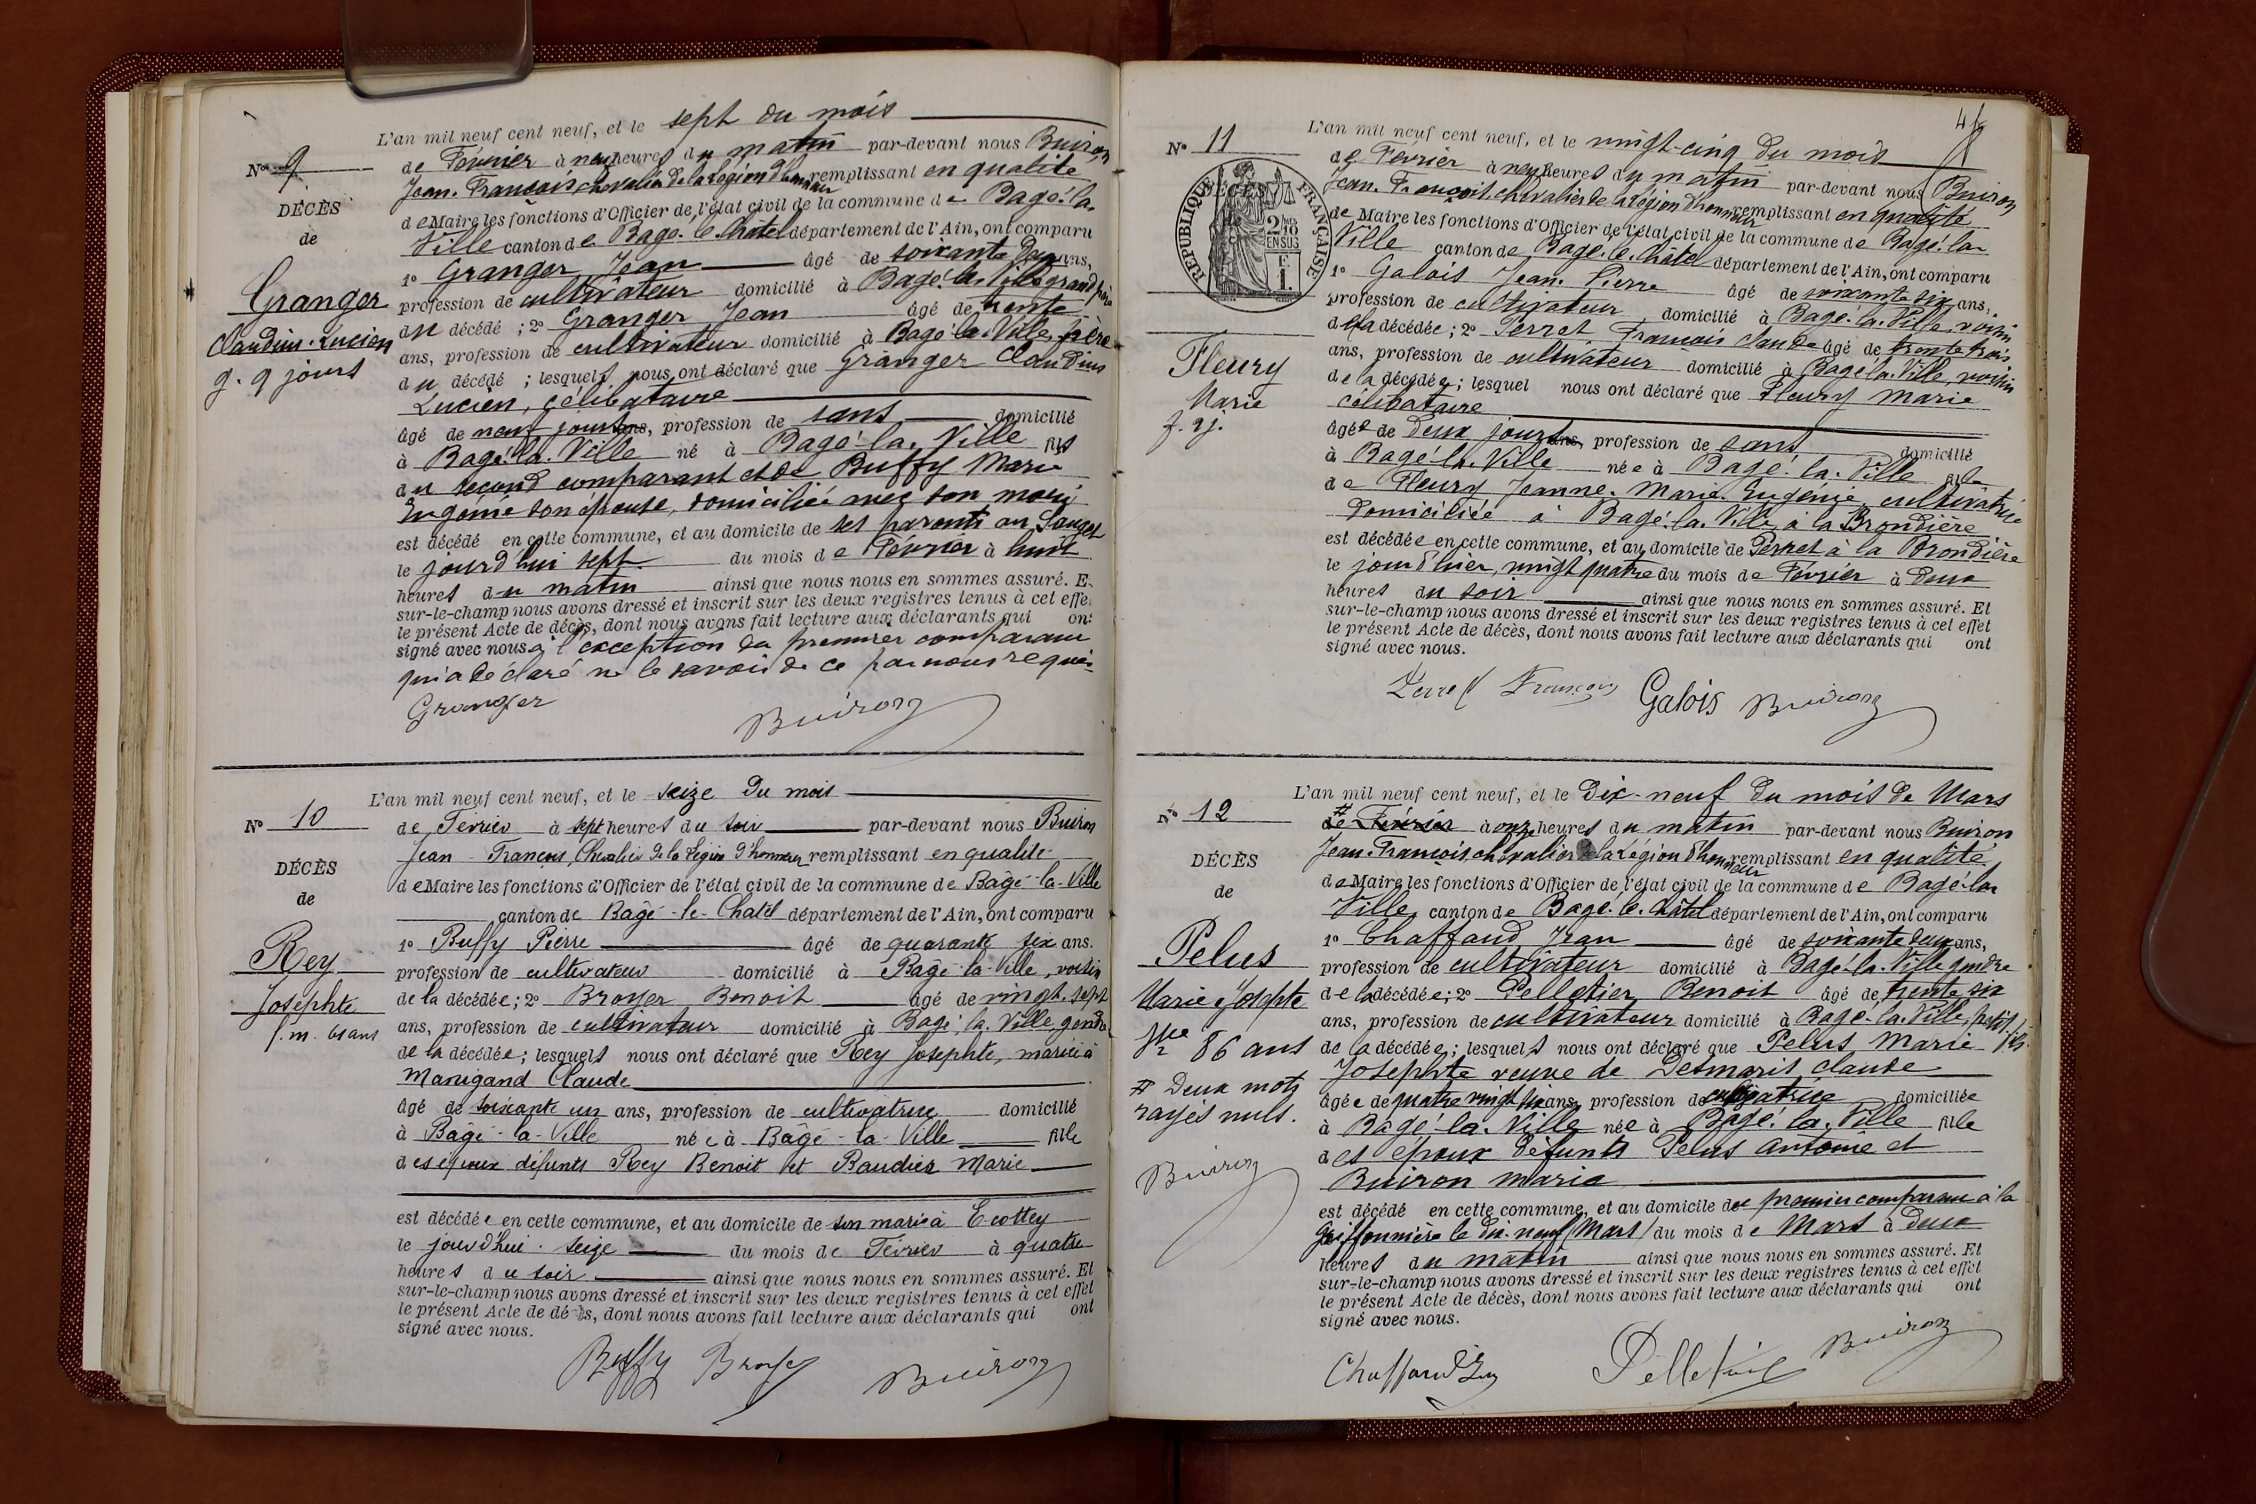 L'an mil neuf cent neuf, et le sept du mois
N° 9
de Février à neuf heures du matin par-devant nous Buiron
Jean-François chevalier de la Légion d'honneur remplissant en qualité
DÉCÈS
de Maire les fonctions d'Officier de l'état civil de la commune de Bagé-la-
de
Ville canton de Bagé-le-Châtel département de l'Ain, ont comparu
1° Granger Jean âgé de soixante deux ans,
Granger
profession de cultivateur domicilié à Bagé-la-Ville grand père
Claudius-Lucien
du décédé ; 2° Granger Jean âgé de trente
g. 9 jours
ans, profession de cultivateur domicilié à Bagé-la-Ville, père
du décédé ; lesquels nous ont déclaré que Granger Claudius
Lucien, célibataire
âgé de neuf jours ans, profession de sans domicilié
à Bagé-la-Ville né à Bagé-la-Ville fils
du second comparant et de Buffy Marie
Eugénie son épouse, domiciliée avec son mari
est décédé en cette commune, et au domicile de ses parents au Sauget
le jourd'hui sept du mois de Février à huit
heures du matin ainsi que nous nous en sommes assuré. E
sur-le-champ nous avons dressé et inscrit sur les deux registres tenus à cet effe
le présent Acte de décès, dont nous avons fait lecture aux déclarants qui ont
signé avec nous à l'exception du premier comparant
qui a déclaré ne le savoir de ce par nous requis
Granger Buiron
L'an mil neuf cent neuf, et le seize du mois
N° 10
de Février à sept heures du soir par-devant nous Buiron
Jean François, Chevalier de la Légion d'honneur remplissant en qualité
DÉCÈS
de Maire les fonctions d'Officier de l'état civil de la commune de Bagé-la-Ville
de
canton de Bagé-le-Chatel département de l'Ain, ont comparu
1° Buffy Pierre âgé de quarante six ans.
Rey
profession de cultivateur domicilié à Bagé-la-Ville, voisin
Josephte
de la décédée ; 2° Broyer Benoit âgé de vingt-sept
f. m. 61 ans
ans, profession de cultivateur domicilié à Bagé-la-Ville, gendre
de la décédée ; lesquels nous ont déclaré que Rey Josephte, mariée à
Manigand Claude
âgé de soixante un ans, profession de cultivatrice domicilié
à Bagé-la-Ville née à Bagé-la-Ville fille
des époux défunts Rey Benoit et Baudier Marie
est décédée en cette commune, et au domicile de son mari à Ecottey
le jourd'hui seize du mois de Février à quatre
heures du soir ainsi que nous nous en sommes assuré. Et
sur-le-champ nous avons dressé et inscrit sur les deux registres tenus à cet effet
le présent Acte de décès, dont nous avons fait lecture aux déclarants qui ont
signé avec nous.
Buffy Broyer Buiron
L'an mil neuf cent neuf, et le vingt-cinq du mois
N° 11
de Février à neuf heures du matin par-devant nous Buiron
Jean-François chevalier de la Légion d'honneur remplissant en qualité
RÉPUBLIQUE FRANÇAISE
2/10 EN SUS
F. 1.
de Maire les fonctions d'Officier de l'état civil de la commune de Bagé-la-
Ville canton de Bagé-le-Châtel département de l'Ain, ont comparu
1° Galois Jean-Pierre âgé de soixante six ans,
profession de cultivateur domicilié à Bagé-la-Ville, voisin
de la décédée ; 2° Perret François Claude âgé de trente trois
Fleury
ans, profession de cultivateur domicilié à Bagé-la-Ville, voisin
Marie
de la décédée ; lesquel nous ont déclaré que Fleury Marie
célibataire
f. 2j.
âgée de deux jours ans, profession de sans domicilié
à Bagé-la-Ville née à Bagé-la-Ville fille
de Fleury Jeanne-Marie-Eugénie, cultivatrice
domiciliée à Bagé-la-Ville, à la Brondière
est décédée en cette commune, et au domicile de Perret à la Brondière
le jour d'hier, vingt quatre du mois de Février à deux
heures du soir ainsi que nous nous en sommes assuré. Et
sur-le-champ nous avons dressé et inscrit sur les deux registres tenus à cet effet
le présent Acte de décès, dont nous avons fait lecture aux déclarants qui ont
signé avec nous.
Perret François Galois Buiron
L'an mil neuf cent neuf, et le Dix-neuf du mois de Mars
N° 12
# de Février à onze heures du matin par-devant nous Buiron
Jean-François chevalier de la Légion d'honneur remplissant en qualité
DÉCÈS
de Maire les fonctions d'Officier de l'état civil de la commune de Bagé-la
de
Ville canton de Bagé-le-Châtel département de l'Ain, ont comparu
1° Chaffaud Jean âgé de soixante deux ans,
Pelus
profession de cultivateur domicilié à Bagé-la-Ville gendre
Marie Josephte
de la décédée ; 2° Pelletier Benoit âgé de trente six
ans, profession de cultivateur domicilié à Bagé-la-Ville, petit fils
Vve 86 ans
de la décédée ; lesquels nous ont déclaré que Pelus Marie
Josephte veuve de Desmaris Claude
# Deux mots
âgée de quatre vingt six ans, profession de cultivatrice domiciliée
rayés nuls.
à Bagé-la-Ville née à Bagé-la-Ville fille
des époux défunts Pelus Antoine et
Buiron
Buiron Marie
est décédé en cette commune, et au domicile du premier comparant à la
Griffonnière le dix-neuf (Mars) du mois de Mars à deux
heures du matin ainsi que nous nous en sommes assuré. Et
sur-le-champ nous avons dressé et inscrit sur les deux registres tenus à cet effet
le présent Acte de décès, dont nous avons fait lecture aux déclarants qui ont
signé avec nous.
Chaffaud Jean Pelletier Buiron